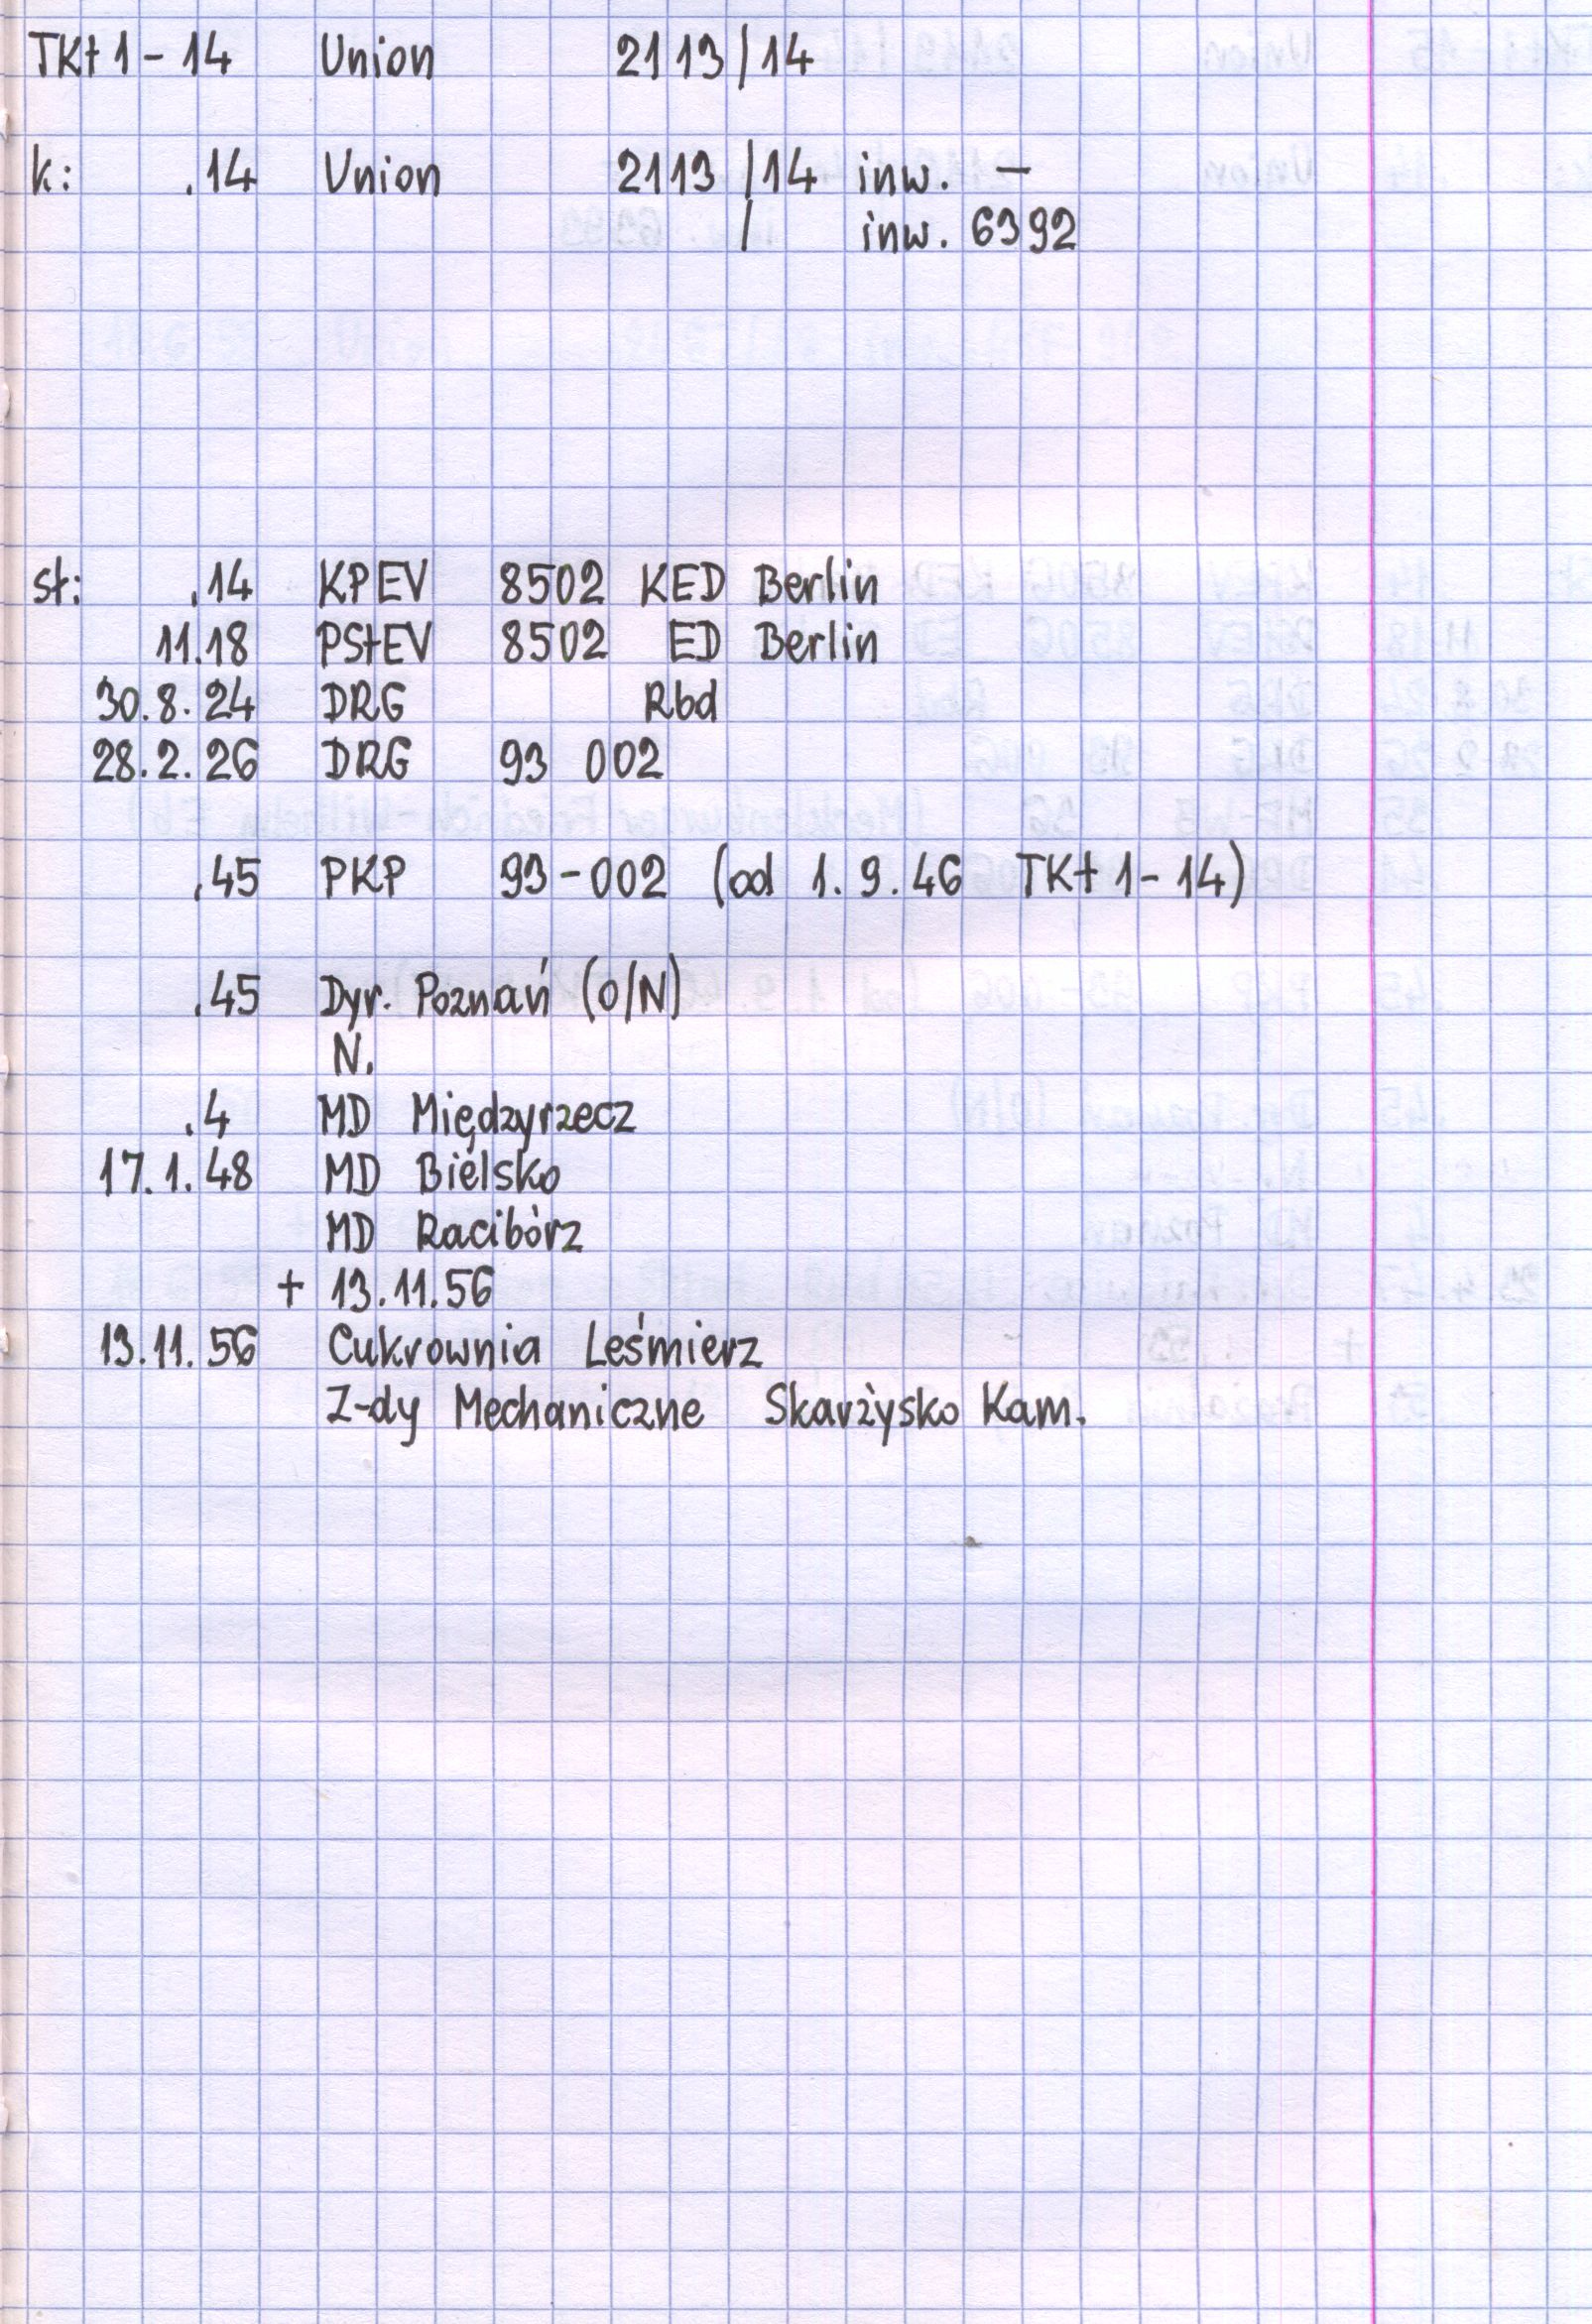 TKt 1-14 Union 2113/14
k: .14 Union 2113/14 inw. -
/ inw. 6392
st: .14 KPEV 8502 KED Berlin
11.18 PStEV 8502 ED Berlin
30.8.24 DRG Rbd
28.2.26 DRG 93 002
.45 PKP 93-002 (od 1.9.46 TKt 1-14)
.45 Dyr. Poznań (O/N)
N.
.4 MD Międzyrzecz
17.1.48 MD Bielsko
MD Racibórz
+ 13.11.56
13.11.56 Cukrownia Leśmierz
Z-dy Mechaniczne Skarżysko Kam.